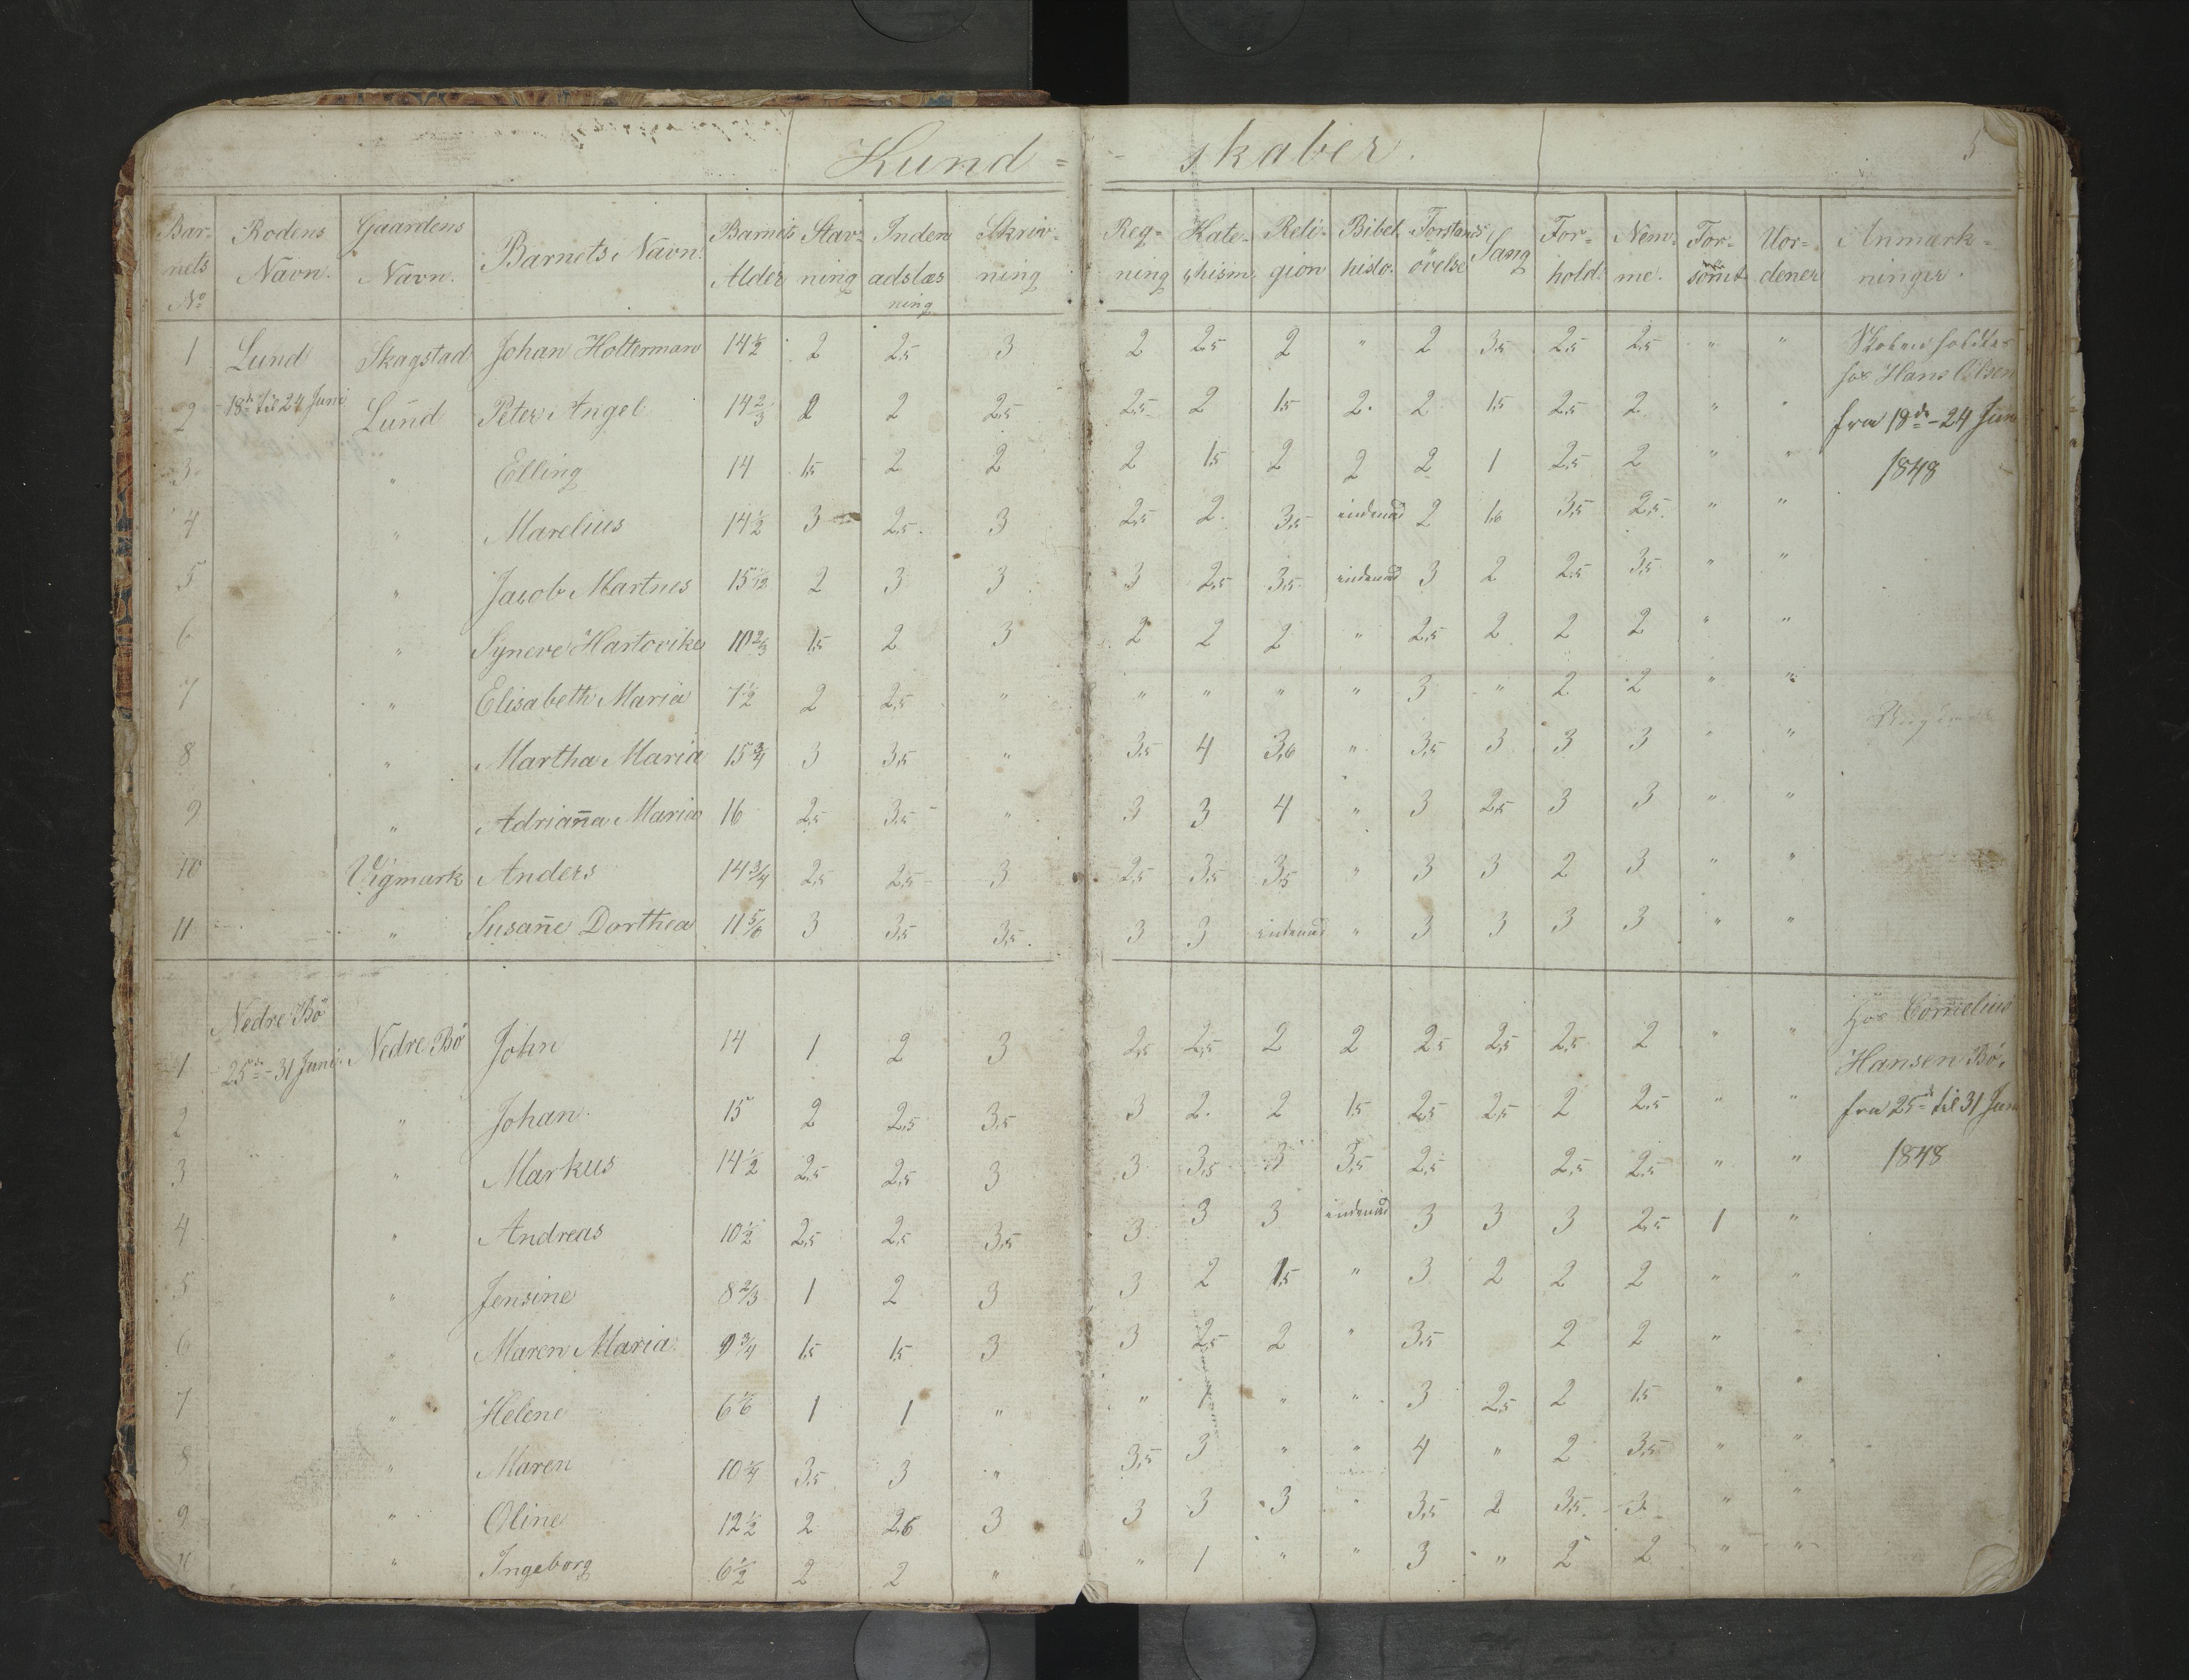 Kund= - skaber. 5
Bar- nets No | Rodens Navn. | Gaardens Navn. | Barnets Navn. | Barnets Alder | Stav- ning | Inden adslæs ning | Skriv- ning | Reg- ning | Kate- chism. | Reli- gion | Bibel histo. | Forstands övelse | Sang | For- hold. | Nem- me. | For- sömt | Uor- dener | Anmærk- ninger.
1 Lund Skagstad Johan Holterman 14½ 2 2,5 3 2 2,5 2 " 2 3,5 2,5 2,5 " " Skolen holdtes
hos Hans Olsen
2 18de til 24 Juni Lund Peter Angel 14⅔ 2 2 2,5 2,5 2 1,5 2. 2 1,5 2,5 2 " " fra 18de - 24 Jun
3 " Elling 14 1,5 2 2 2 1,5 2 2 2 1 2,5 2 " " 1848
4 " Marelius 14½ 3 2,5 3 2,5 2. 3,5 indenad 2 1,6 3,5 2,5 " "
5 " Jacob Martnes 15 1/12 2 3 3 3 2,5 3,5 indenad 3 2 2,5 3,5 " "
6 " Syneve Hartvika 10⅔ 1,5 2 3 2 2 2 " 2,5 2 2 2 " "
7 " Elisabeth Maria 7½ 2 2,5 " " " " " 3 " 2 2 " "
8 " Martha Maria 15¾ 3 3,5 " 3,5 4 3,6 " 3,5 3 3 3 " "
9 " Adrian̄a Maria 16 2,5 3,5 " 3 3 4 " 3 2,5 3 3 " "
10 Vigmark Anders 14¾ 2,5 2,5 3 2,5 3,5 3,5 " 3 3 2 3 " "
11 " Susan̄e Dorthea 11⅚ 3 3,5 3,5. 3 3 indenad " 3 3 3 3 " "
Nedre Bö hos Cornelius
1 25de - 31 Juni Nedre Bö John 14 1 2 3 2,5 2,5 2 2 2,5 2,5 2,5 2 " " Hansen Bö.
2 " Johan 15 2 2,5 3,5 3 2. 2 1,5 2,5 2,5 2 2,5 " " fra 25de til 31 Jun
3 " Markus 14½ 2,5 2,5 3 3 3,5 3 3,5 2,5 2,5 2,5 " " 1848
4 " Andreas 10½ 2,5 2,5 3,5 3 3 3 indenad 3 3 3 2,5 1 "
5 " Jensine 8⅔ 1 2 3 3 2 1,5 " 3 2 2 2 " "
6 " Maren Maria 9¾ 1,5 1,5 3 3 2,5 2 " 3,5 2 2 " "
7 " Helene 6⅙ 1 1 " " 1 " " 3 2,5 2 1,5 " "
8 " Maren 10¼ 3,5 3 " 3,5 3 " " 4 " 2 3,5 " "
9 " Oline 12½ 2 2,5 3 3 3 3 " 3,5 2 3,5 3 " "
" Ingeborg 6½ 2 2 " " 1 " " 3 " 2 2 " "